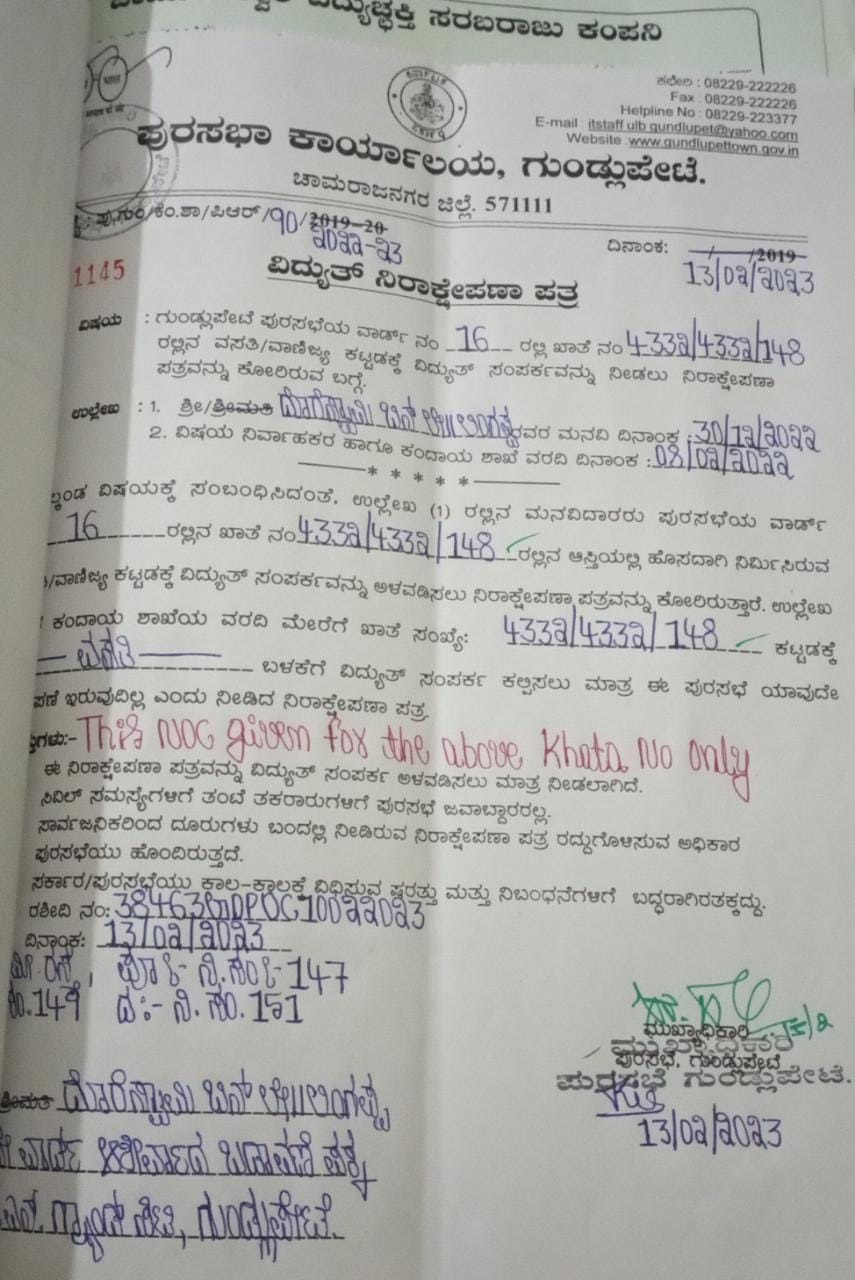 ವಿದ್ಯುಚ್ಛಕ್ತಿ ಸರಬರಾಜು ಕಂಪನಿ
ಕಛೇರಿ : 08229-222226
Fax : 08229-222226
Helpline No : 08229-223377
E-mail : itstaff ulb gundlupet@yahoo.com
Website :www.gundlupettown.gov.in
ಪುರಸಭಾ ಕಾರ್ಯಾಲಯ, ಗುಂಡ್ಲುಪೇಟೆ.
ಚಾಮರಾಜನಗರ ಜಿಲ್ಲೆ. 571111
ಪು.ಗುಂ/ಕಂ.ಶಾ/ಪಿಆರ್/90/2019-20
2022-23
ದಿನಾಂಕ: __/__/2019
13/02/2023
1145
ವಿದ್ಯುತ್ ನಿರಾಕ್ಷೇಪಣಾ ಪತ್ರ
ವಿಷಯ : ಗುಂಡ್ಲುಪೇಟೆ ಪುರಸಭೆಯ ವಾರ್ಡ್ ನಂ 16 ರಲ್ಲಿ ಖಾತೆ ನಂ 4332/4332/148
ರಲ್ಲಿನ ವಸತಿ/ವಾಣಿಜ್ಯ ಕಟ್ಟಡಕ್ಕೆ ವಿದ್ಯುತ್ ಸಂಪರ್ಕವನ್ನು ನೀಡಲು ನಿರಾಕ್ಷೇಪಣಾ
ಪತ್ರವನ್ನು ಕೋರಿರುವ ಬಗ್ಗೆ.
ಉಲ್ಲೇಖ : 1. ಶ್ರೀ/ಶ್ರೀಮತಿ ದೊರೆಸ್ವಾಮಿ ಬಿನ್ ರವರ ಮನವಿ ದಿನಾಂಕ :30/12/2022
2. ವಿಷಯ ನಿರ್ವಾಹಕರ ಹಾಗೂ ಕಂದಾಯ ಶಾಖೆ ವರದಿ ದಿನಾಂಕ :08/02/2022
* * * * *
ಲ್ಕಂಡ ವಿಷಯಕ್ಕೆ ಸಂಬಂಧಿಸಿದಂತೆ, ಉಲ್ಲೇಖ (1) ರಲ್ಲಿನ ಮನವಿದಾರರು ಪುರಸಭೆಯ ವಾರ್ಡ್
16 ರಲ್ಲಿನ ಖಾತೆ ನಂ 4332/4332/148 ರಲ್ಲಿನ ಆಸ್ತಿಯಲ್ಲಿ ಹೊಸದಾಗಿ ನಿರ್ಮಿಸಿರುವ
/ವಾಣಿಜ್ಯ ಕಟ್ಟಡಕ್ಕೆ ವಿದ್ಯುತ್ ಸಂಪರ್ಕವನ್ನು ಅಳವಡಿಸಲು ನಿರಾಕ್ಷೇಪಣಾ ಪತ್ರವನ್ನು ಕೋರಿರುತ್ತಾರೆ. ಉಲ್ಲೇಖ
ಕಂದಾಯ ಶಾಖೆಯ ವರದಿ ಮೇರೆಗೆ ಖಾತೆ ಸಂಖ್ಯೆ: 4332/4332/148 ಕಟ್ಟಡಕ್ಕೆ
ವಸತಿ ಬಳಕೆಗೆ ವಿದ್ಯುತ್ ಸಂಪರ್ಕ ಕಲ್ಪಿಸಲು ಮಾತ್ರ ಈ ಪುರಸಭೆ ಯಾವುದೇ
ಪಣೆ ಇರುವುದಿಲ್ಲ ಎಂದು ನೀಡಿದ ನಿರಾಕ್ಷೇಪಣಾ ಪತ್ರ.
ತ್ತುಗಳು:- This NOC given for the above Khata No only
ಈ ನಿರಾಕ್ಷೇಪಣಾ ಪತ್ರವನ್ನು ವಿದ್ಯುತ್ ಸಂಪರ್ಕ ಅಳವಡಿಸಲು ಮಾತ್ರ ನೀಡಲಾಗಿದೆ.
ಸಿವಿಲ್ ಸಮಸ್ಯೆಗಳಿಗೆ ತಂಟೆ ತಕರಾರುಗಳಿಗೆ ಪುರಸಭೆ ಜವಾಬ್ದಾರರಲ್ಲ.
ಸಾರ್ವಜನಿಕರಿಂದ ದೂರುಗಳು ಬಂದಲ್ಲಿ ನೀಡಿರುವ ನಿರಾಕ್ಷೇಪಣಾ ಪತ್ರ ರದ್ದುಗೊಳಿಸುವ ಅಧಿಕಾರ
ಪುರಸಭೆಯು ಹೊಂದಿರುತ್ತದೆ.
ಸರ್ಕಾರ/ಪುರಸಭೆಯು ಕಾಲ-ಕಾಲಕ್ಕೆ ವಿಧಿಸುವ ಷರತ್ತು ಮತ್ತು ನಿಬಂಧನೆಗಳಿಗೆ ಬದ್ಧರಾಗಿರತಕ್ಕದ್ದು.
ರಶೀದಿ ನಂ:
ದಿನಾಂಕ: 13/02/2023
ನಿ.ಸಂ:-147
ನಂ.149 ದ:- ನಿ.ಸಂ.151
ಮುಖ್ಯಾಧಿಕಾರಿ
ಪುರಸಭೆ, ಗುಂಡ್ಲುಪೇಟೆ
ಮುಖ್ಯಾಧಿಕಾರಿ
ಪುರಸಭೆ ಗುಂಡ್ಲುಪೇಟೆ.
13/02/2023
ಶ್ರೀಮತಿ ದೊರೆಸ್ವಾಮಿ ಬಿನ್
ವಾರ್ಡ್ ಬಡಾವಣೆ ಪಕ್ಕ
ಗುಂಡ್ಲುಪೇಟೆ.